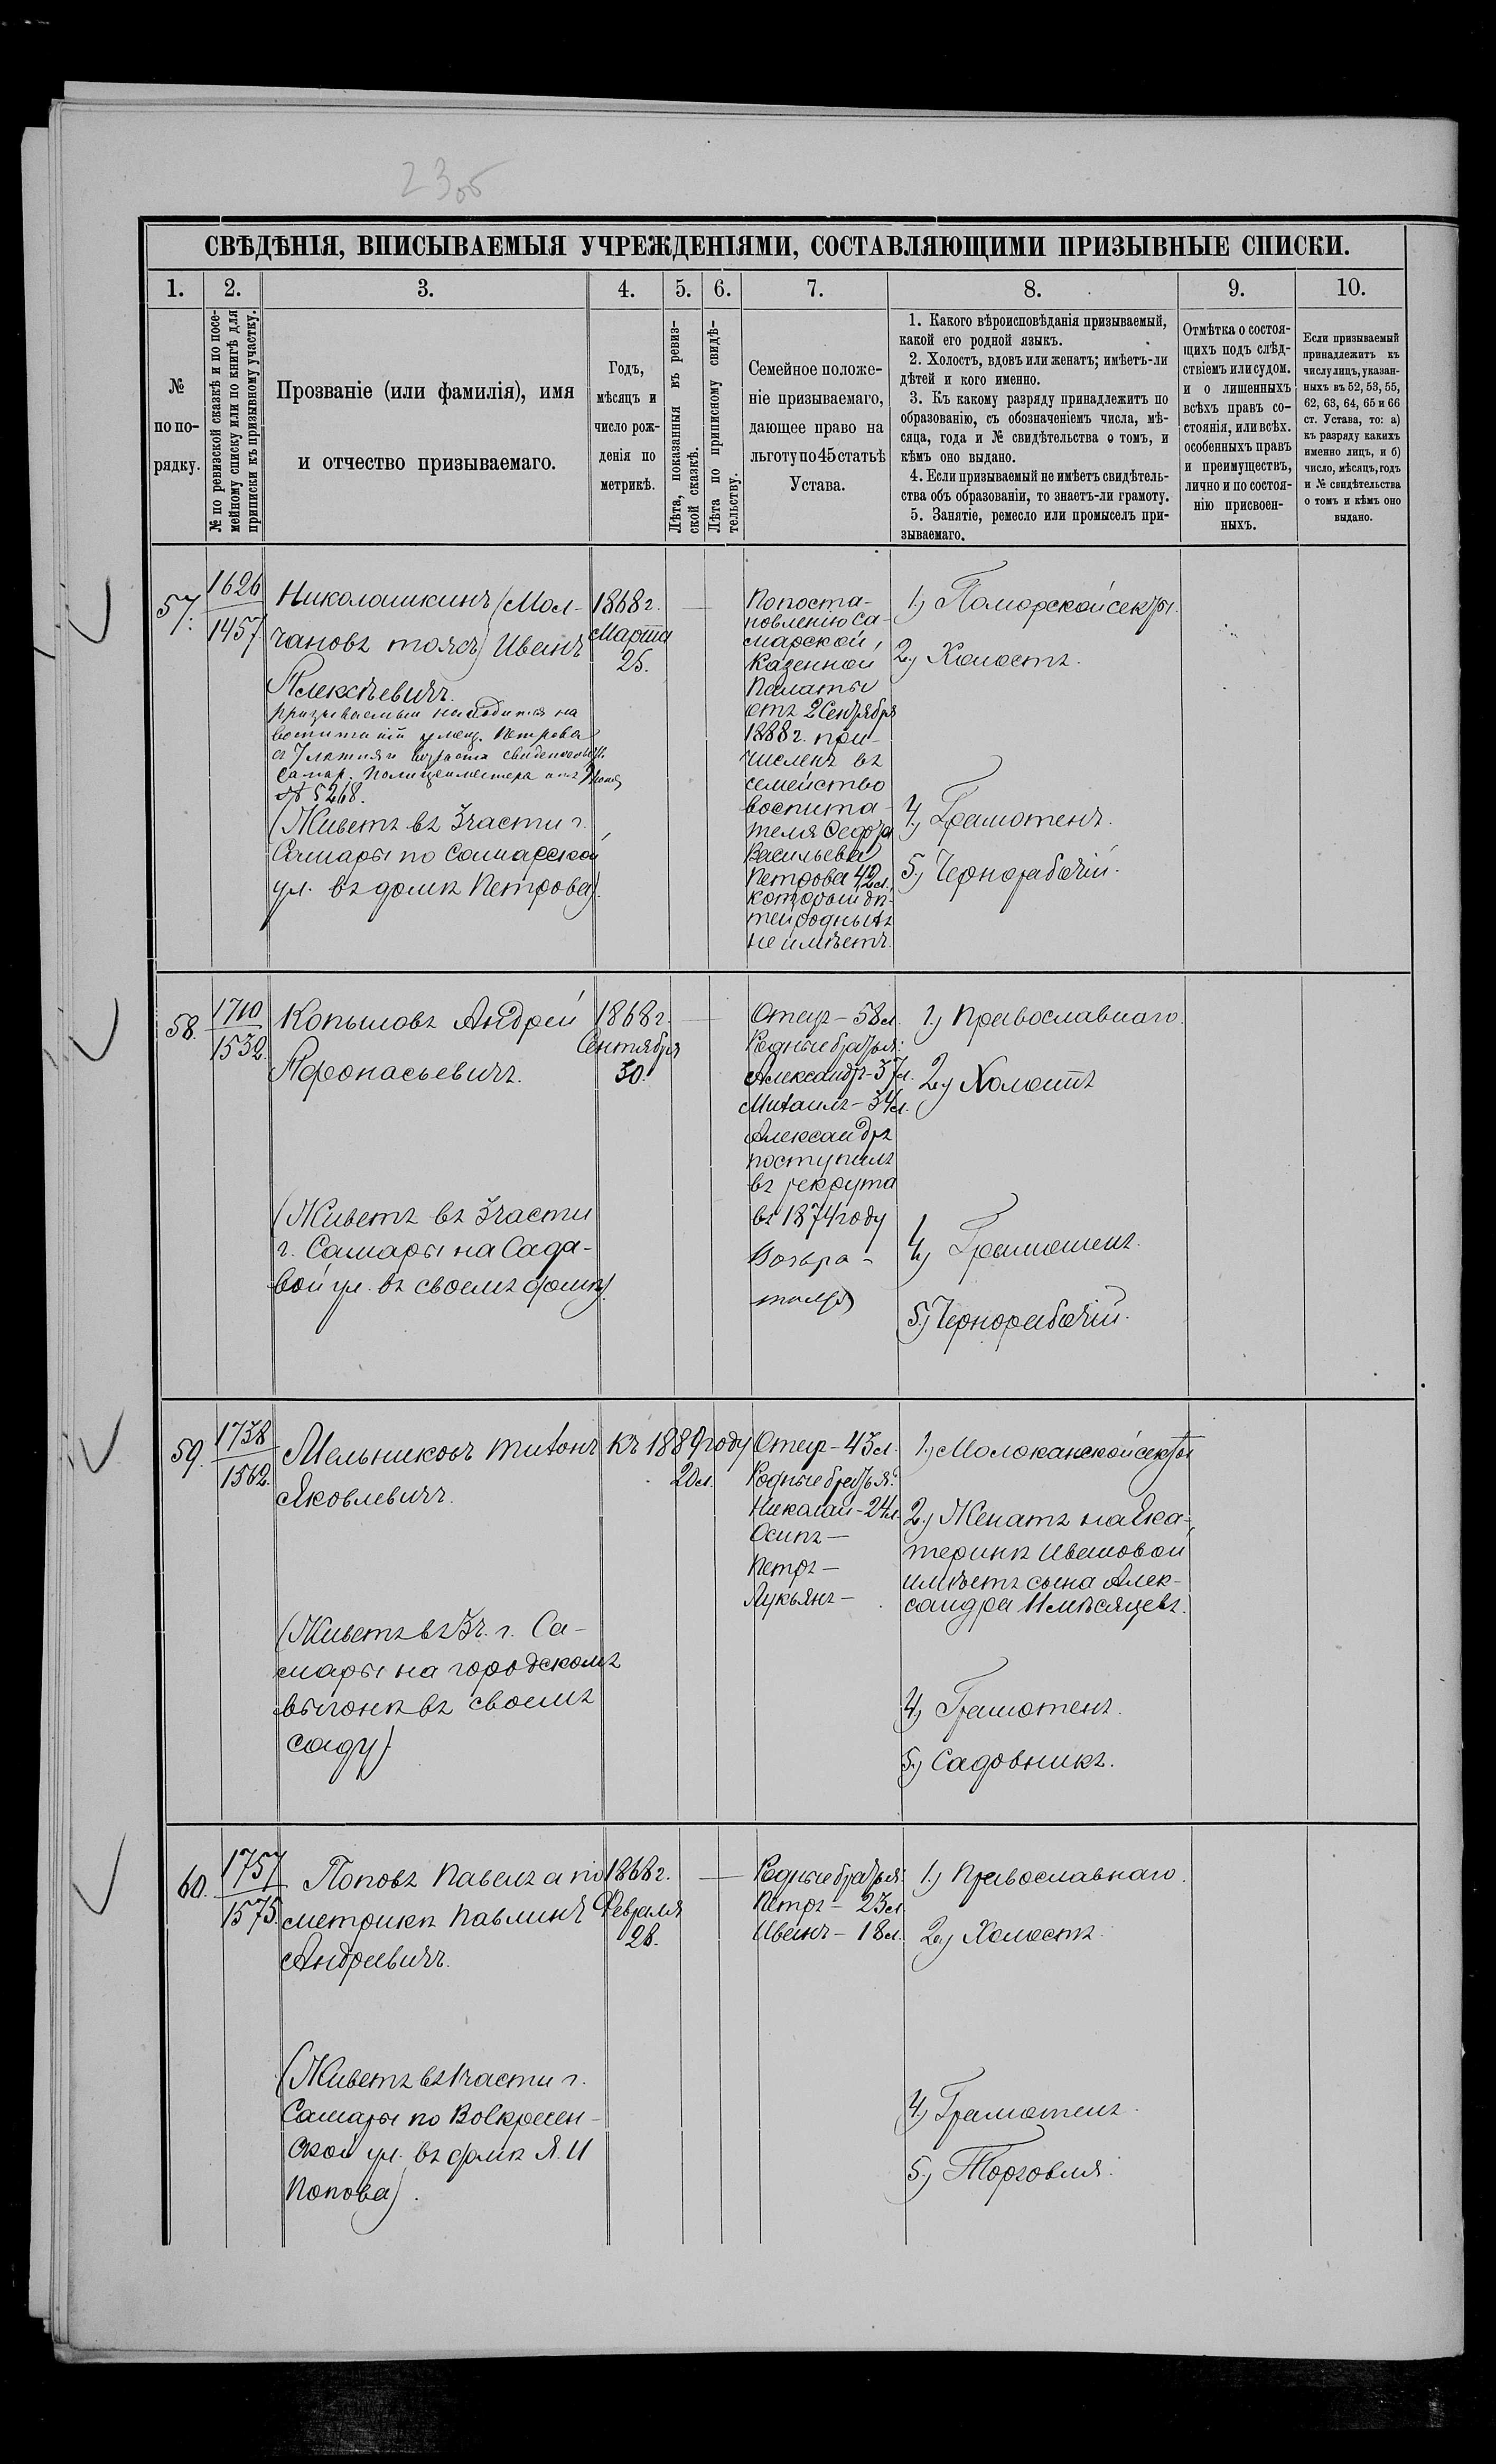 2305
СВѢДѢНІЯ, ВПИСЫВАЕМЫЯ УЧРЕЖДЕНІЯМИ, СОСТАВЛЯЮЩИМИ ПРИЗЫВНЫЕ СПИСКИ.
1.
2.
3.
4.
5.
6.
7.
8.
9.
10.
№
по по-
рядку.
№ по ревизской сказкѣ и по посе-
мейному списку или по книгѣ для
приписки къ призывному участку.
Прозваніе (или фамилія), имя
и отчество призываемаго.
Годъ,
мѣсяцъ и
число рож-
денія по
метрикѣ.
Лѣта, показанныя въ ревиз-
ской сказкѣ.
Лѣта по приписному свидѣ-
тельству.
Семейное положе-
ніе призываемаго,
дающее право на
льготу по 45 статьѣ
Устава.
1. Какого вѣроисповѣданія призываемый,
какой его родной языкъ.
2. Холостъ, вдовъ или женатъ; имѣетъ-ли
дѣтей и кого именно.
3. Къ какому разряду принадлежитъ по
образованію, съ обозначеніемъ числа, мѣ-
сяца, года и № свидѣтельства о томъ, и
кѣмъ оно выдано.
4. Если призываемый не имѣетъ свидѣтель-
ства объ образованіи, то знаетъ-ли грамоту.
5. Занятіе, ремесло или промыселъ при-
зываемаго.
Отмѣтка о состоя-
щихъ подъ слѣд-
ствіемъ или судом.
и о лишенныхъ
всѣхъ правъ со-
стоянія, или всѣх.
особенныхъ правъ
и преимуществъ,
лично и по состоя-
нію присвоен-
ныхъ.
Если призываемый
принадлежитъ къ
числу лицъ, указан-
ныхъ въ 52, 53, 55,
62, 63, 64, 65 и 66
ст. Устава, то: а)
къ разряду какихъ
именно лицъ, и б)
число, мѣсяцъ, годъ
и № свидѣтельства
о томъ и кѣмъ оно
выдано.
57.
1626
1457
Николашкинъ (Мол-
чановъ тожъ) Иванъ
Алексѣевичъ.
призываемый находится на
воспитаніи у мещ. Петрова
съ 7 лѣтняго возраста свидетельст.
Самар. Полицеймейстера отъ
№ 5268.
(Живетъ въ 3 части г.
Самары по Самарской
ул. въ домѣ Петрова).
1868 г.
Марта
25.
По поста-
новленію Са-
марской
Казенной
Палаты
отъ 2 Сентября
1888 г. при-
численъ въ
семейство
воспита-
теля Федора
Васильева
Петрова 42 л.
который дѣ-
тей родныхъ
не имѣетъ.
1) Поморской секты.
2) Холостъ.
4) Грамотенъ.
5) Чернорабочій.
58.
1710
1532.
Копыловъ Андрей
Афонасьевичъ.
(Живетъ въ 3 части
г. Самары на Садо-
вой ул. въ своемъ домѣ)
1868 г.
Сентября
30.
Отецъ – 58 л.
Родные братья:
Александръ – 37 л.
Михаилъ – 34 л.
Александръ
поступилъ
въ рекрута
въ 1874 году
1) Православнаго.
2) Холостъ
4) Грамотенъ.
5) Чернорабочій.
59.
1738
1562.
Мельниковъ Тихонъ
Яковлевичъ.
(Живетъ въ 3 ч. г. Са-
мары на городскомъ
выгонѣ въ своемъ
саду)
Къ 1889 году
20 л.
Отецъ – 43 л.
Родные братья:
Николай – 24 л.
Осипъ –
Петръ –
Лукьянъ –
1) Молоканской секты
2) Женатъ на Ека-
теринѣ Ивановой
имѣетъ сына Алек-
сандра 11 мѣсяцевъ.
4) Грамотенъ.
5) Садовникъ.
60.
1757
1575.
Поповъ Павелъ а по
метрикѣ Павлинъ
Андреевичъ.
(Живетъ въ 1 части г.
Самары по Воскресен-
ской ул. въ домѣ Я. И
Попова).
1868 г.
Февраля
28.
Родные братья:
Петръ – 23 л
Иванъ – 18 л.
1) Православнаго.
2) Холостъ.
4) Грамотенъ.
5) Торговля.